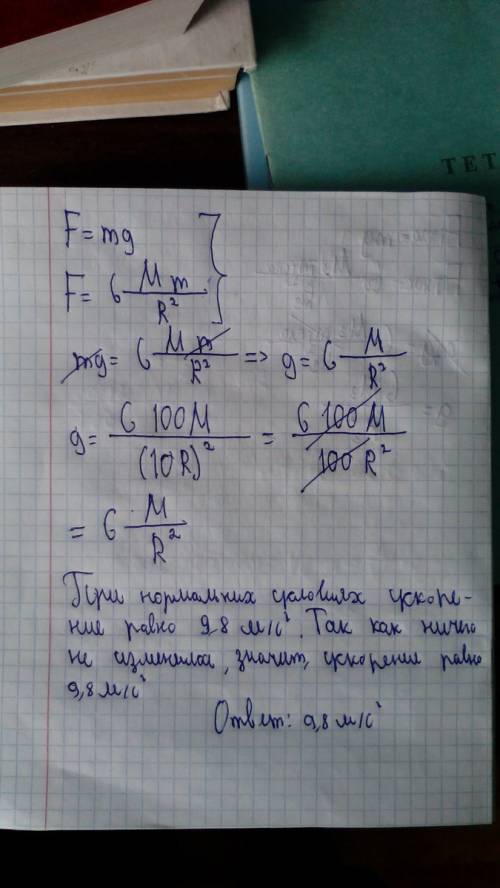 ТЕТ
F = mg
F = G Mm/R²
mg = G Mm/R² => g = G M/R²
g = G 100M/(10R)² = G 100 M/100 R²
= G M/R²
При нормальних условиях ускоре-
ние равно 9,8 м/с². Так как ничего
не изменилос, значит, ускорения равно
9,8 м/с²
Ответ: 9,8 м/с²